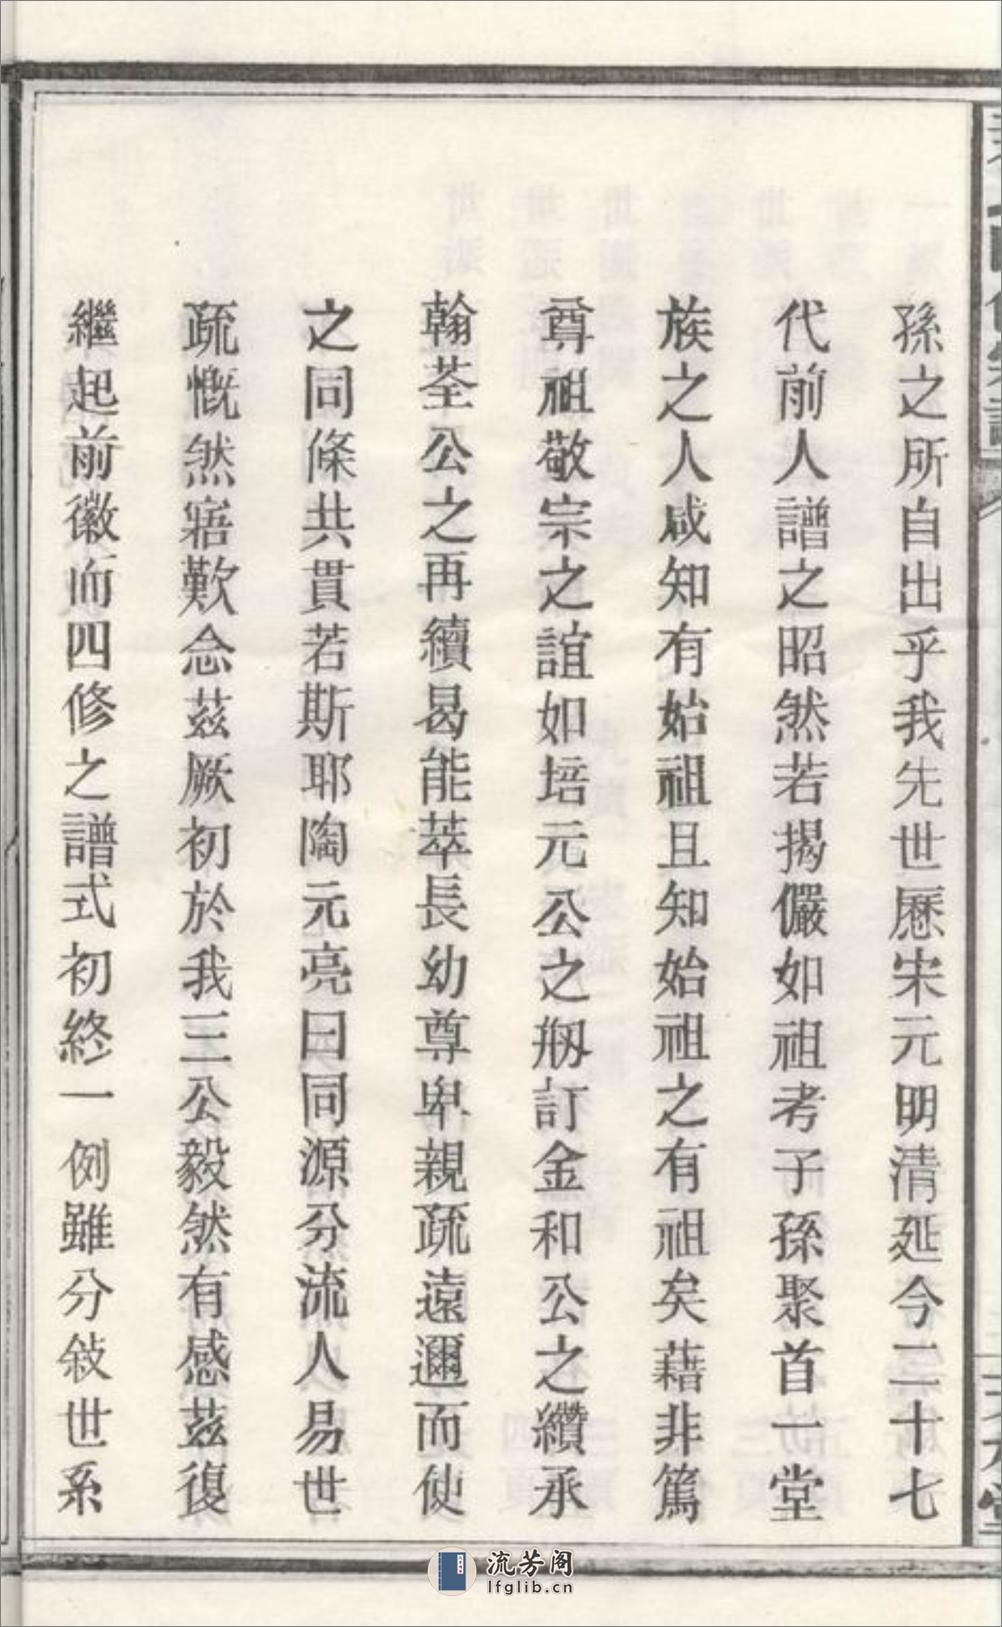 孫之所自出乎我先世歷宋元明清延今二十七
代前人譜之昭然若揭儼如祖考子孫聚首一堂
族之人咸知有始祖且知始祖之有祖矣藉非篤
尊祖敬宗之誼如培元公之剏訂金和公之纘承
翰荃公之再續曷能萃長幼尊卑親疏遠邇而使
之同條共貫若斯耶陶元亮曰同源分流人易世
疏慨然寤歎念茲厥初於我三公毅然有感茲復
繼起前徽而四修之譜式初終一例雖分敍世系
流芳阁
lfglib.cn